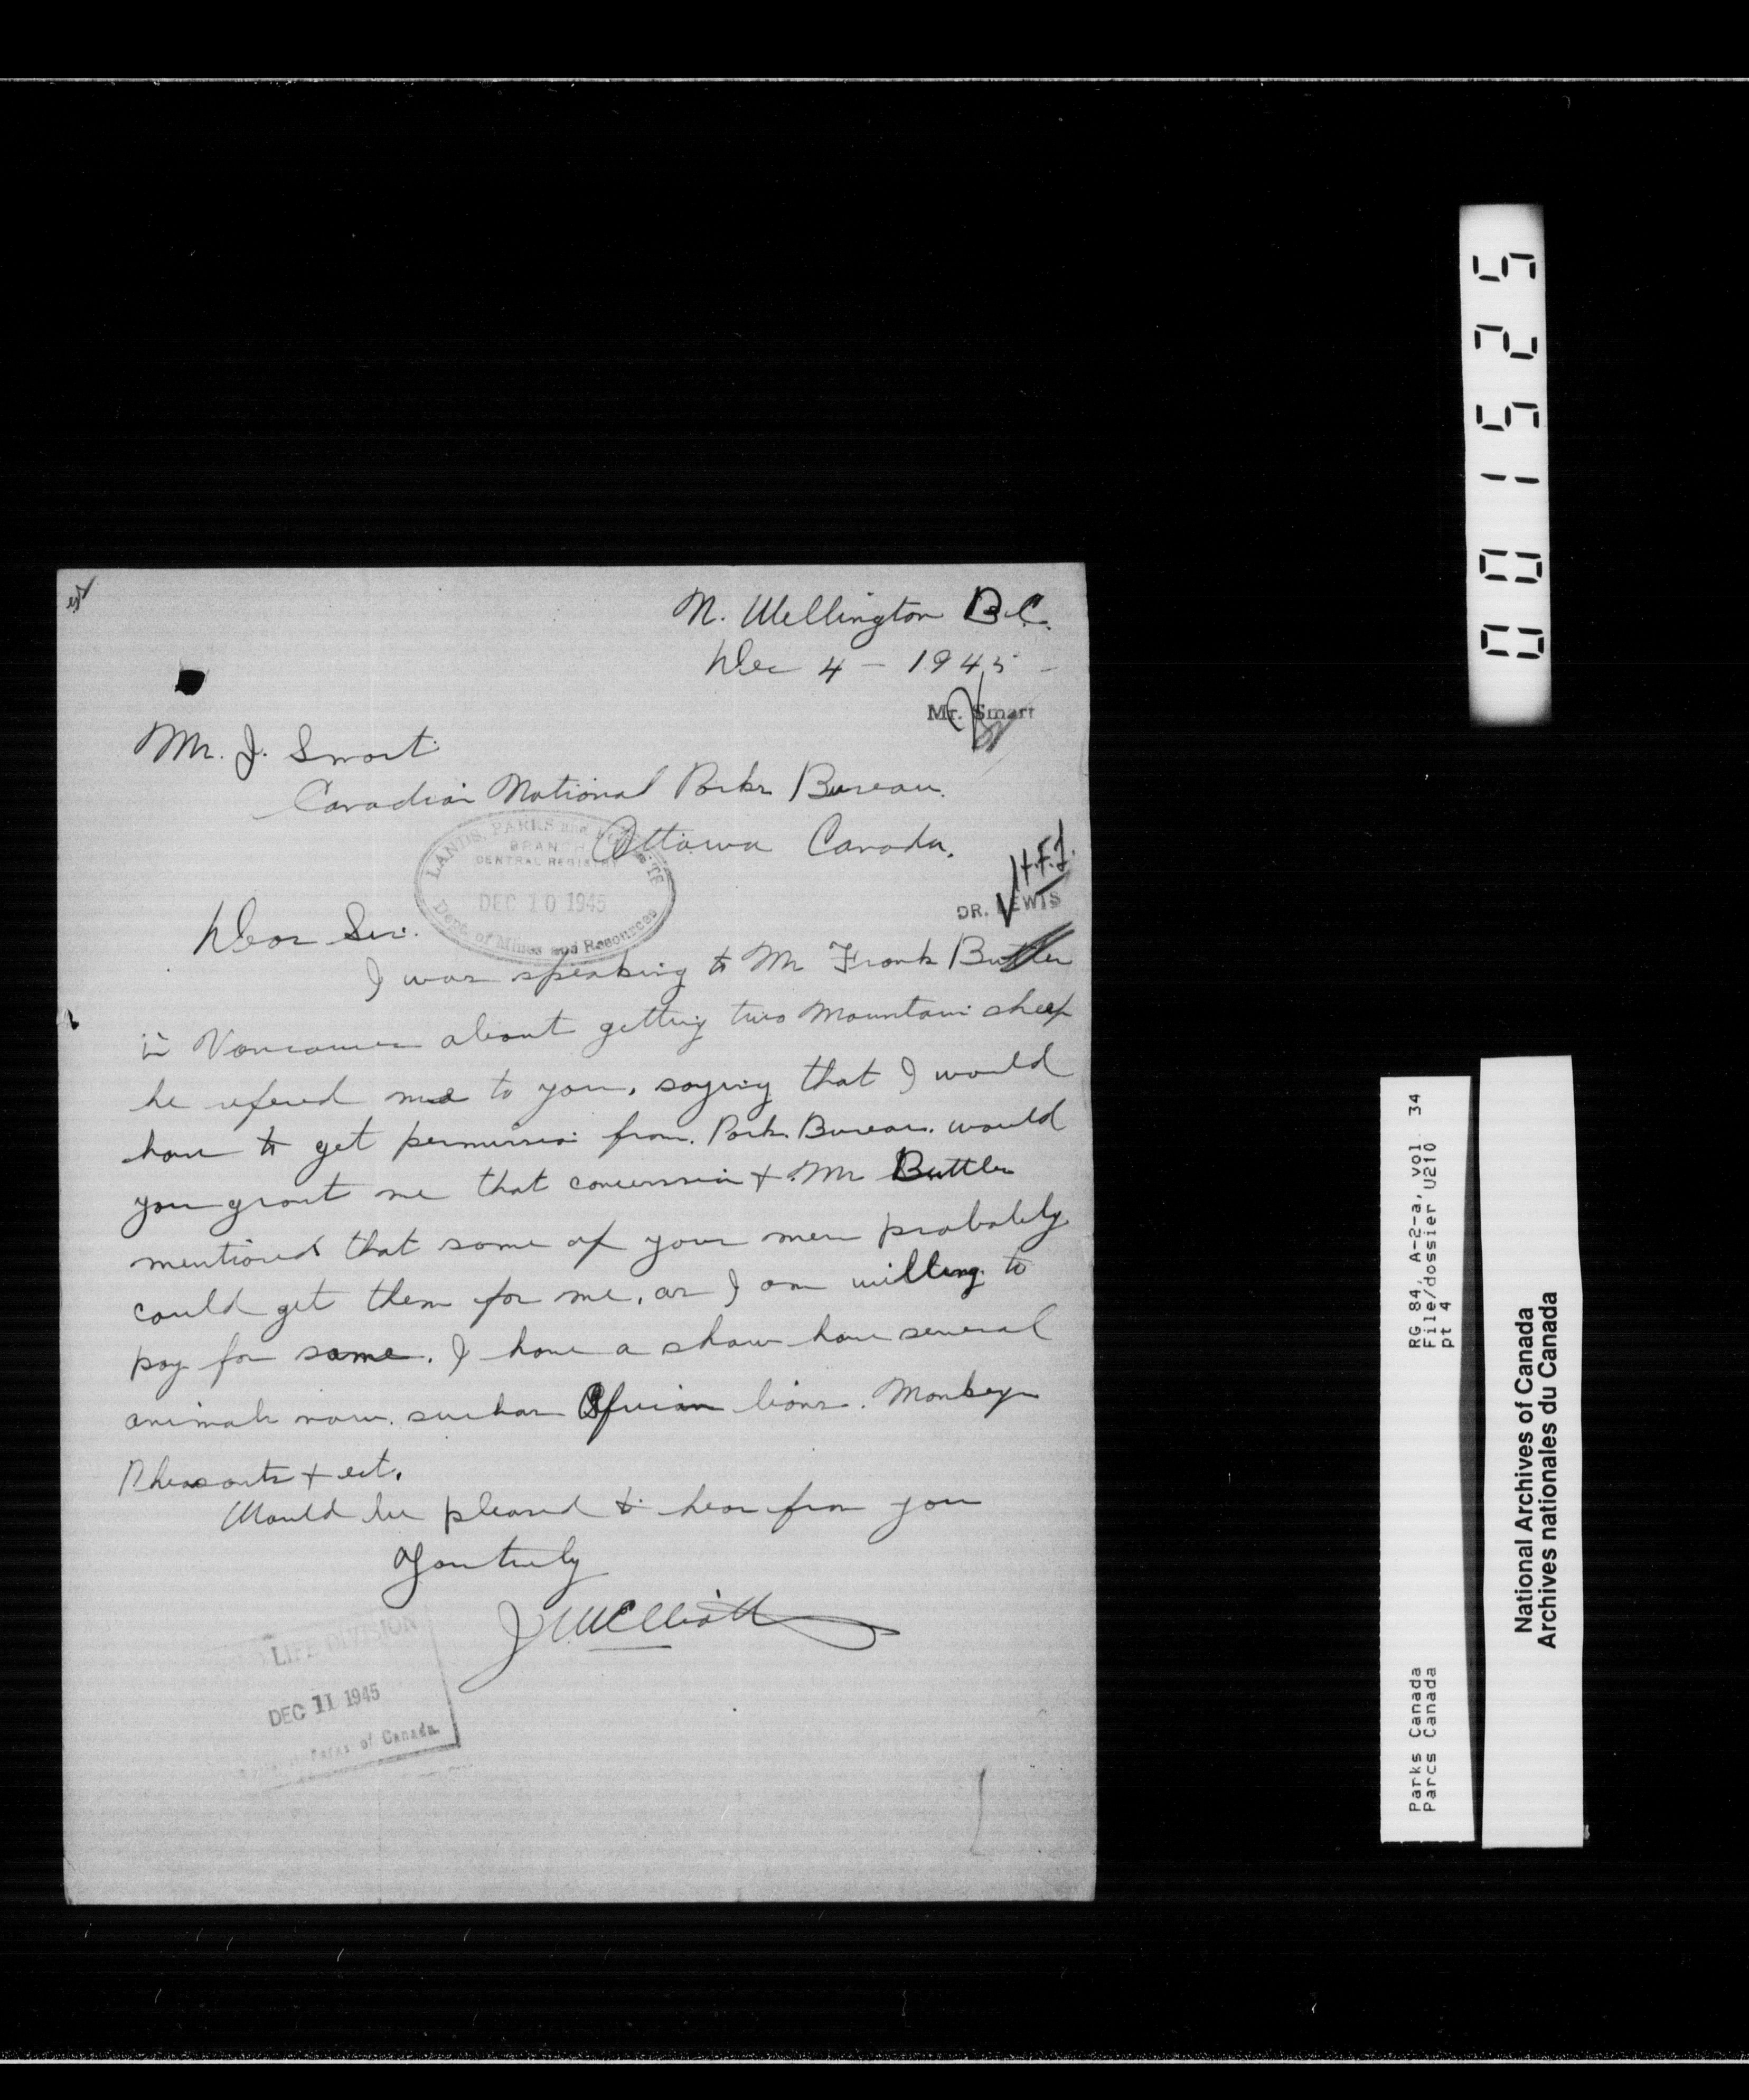 N. Wellington B.C.
Dec 4 - 1945 -
Mr. Smart
Mr. J. Smart
Canadian National Parks Bureau.
Ottawa Canada.
LANDS, PARKS and
BRANCH
CENTRAL REGISTRY
DEC 10 1945
Dept. of Mines and Resources
H.F.L.
DR. LEWIS
Dear Sir.
I was speaking to Mr Frank Buttler
in Vancouver about getting two Mountain sheep
he refered me to you. saying that I would
have to get permission from. Park Bureau. would
you grant me that concession +. Mr Buttler
mentioned that some of your men probably
could get them for me, as I am willing to
pay for same. I have a show have several
animals now. such as African lions. Monkeys
Pheasants + ect.
Would be pleased to hear from you
Yours truly
J W McElliott
LIFE DIVISION
DEC 11 1945
Parks of Canada
001525
RG 84, A-2-a, vol 34
File/dossier U210
pt 4
Parks Canada
Parcs Canada
National Archives of Canada
Archives nationales du Canada